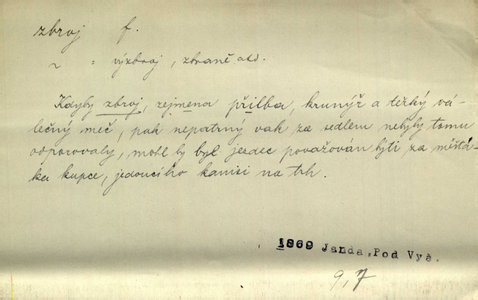 zbroj f.
~ : výzbroj, zbraně atd.
Kdyby zbroj, zejmena přilba, krunýř a těžký vá-
lečný meč, pak nepatrný vak za sedlem nebyly tomu
odporovaly, mohl by byl jezdec považován býti za měšťá-
ka kupce, jedoucího kamsi na trh.
1869 Janda, Pod Vyš.
9, 7